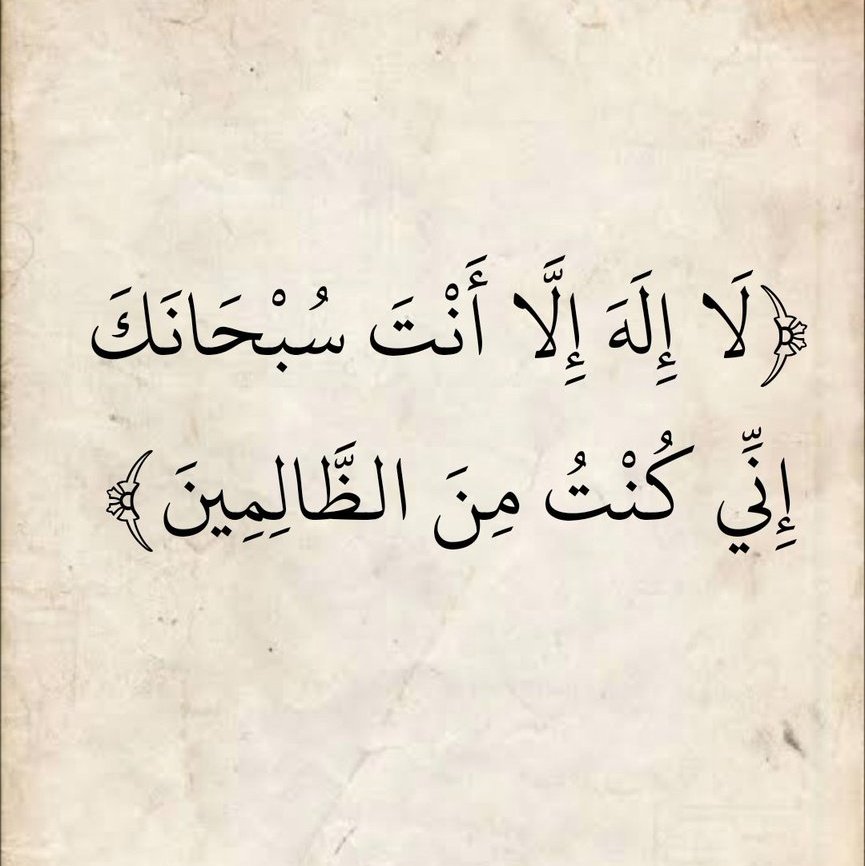 ﴿لَا إِلَهَ إِلَّا أَنْتَ سُبْحَانَكَ
إِنِّي كُنْتُ مِنَ الظَّالِمِينَ﴾